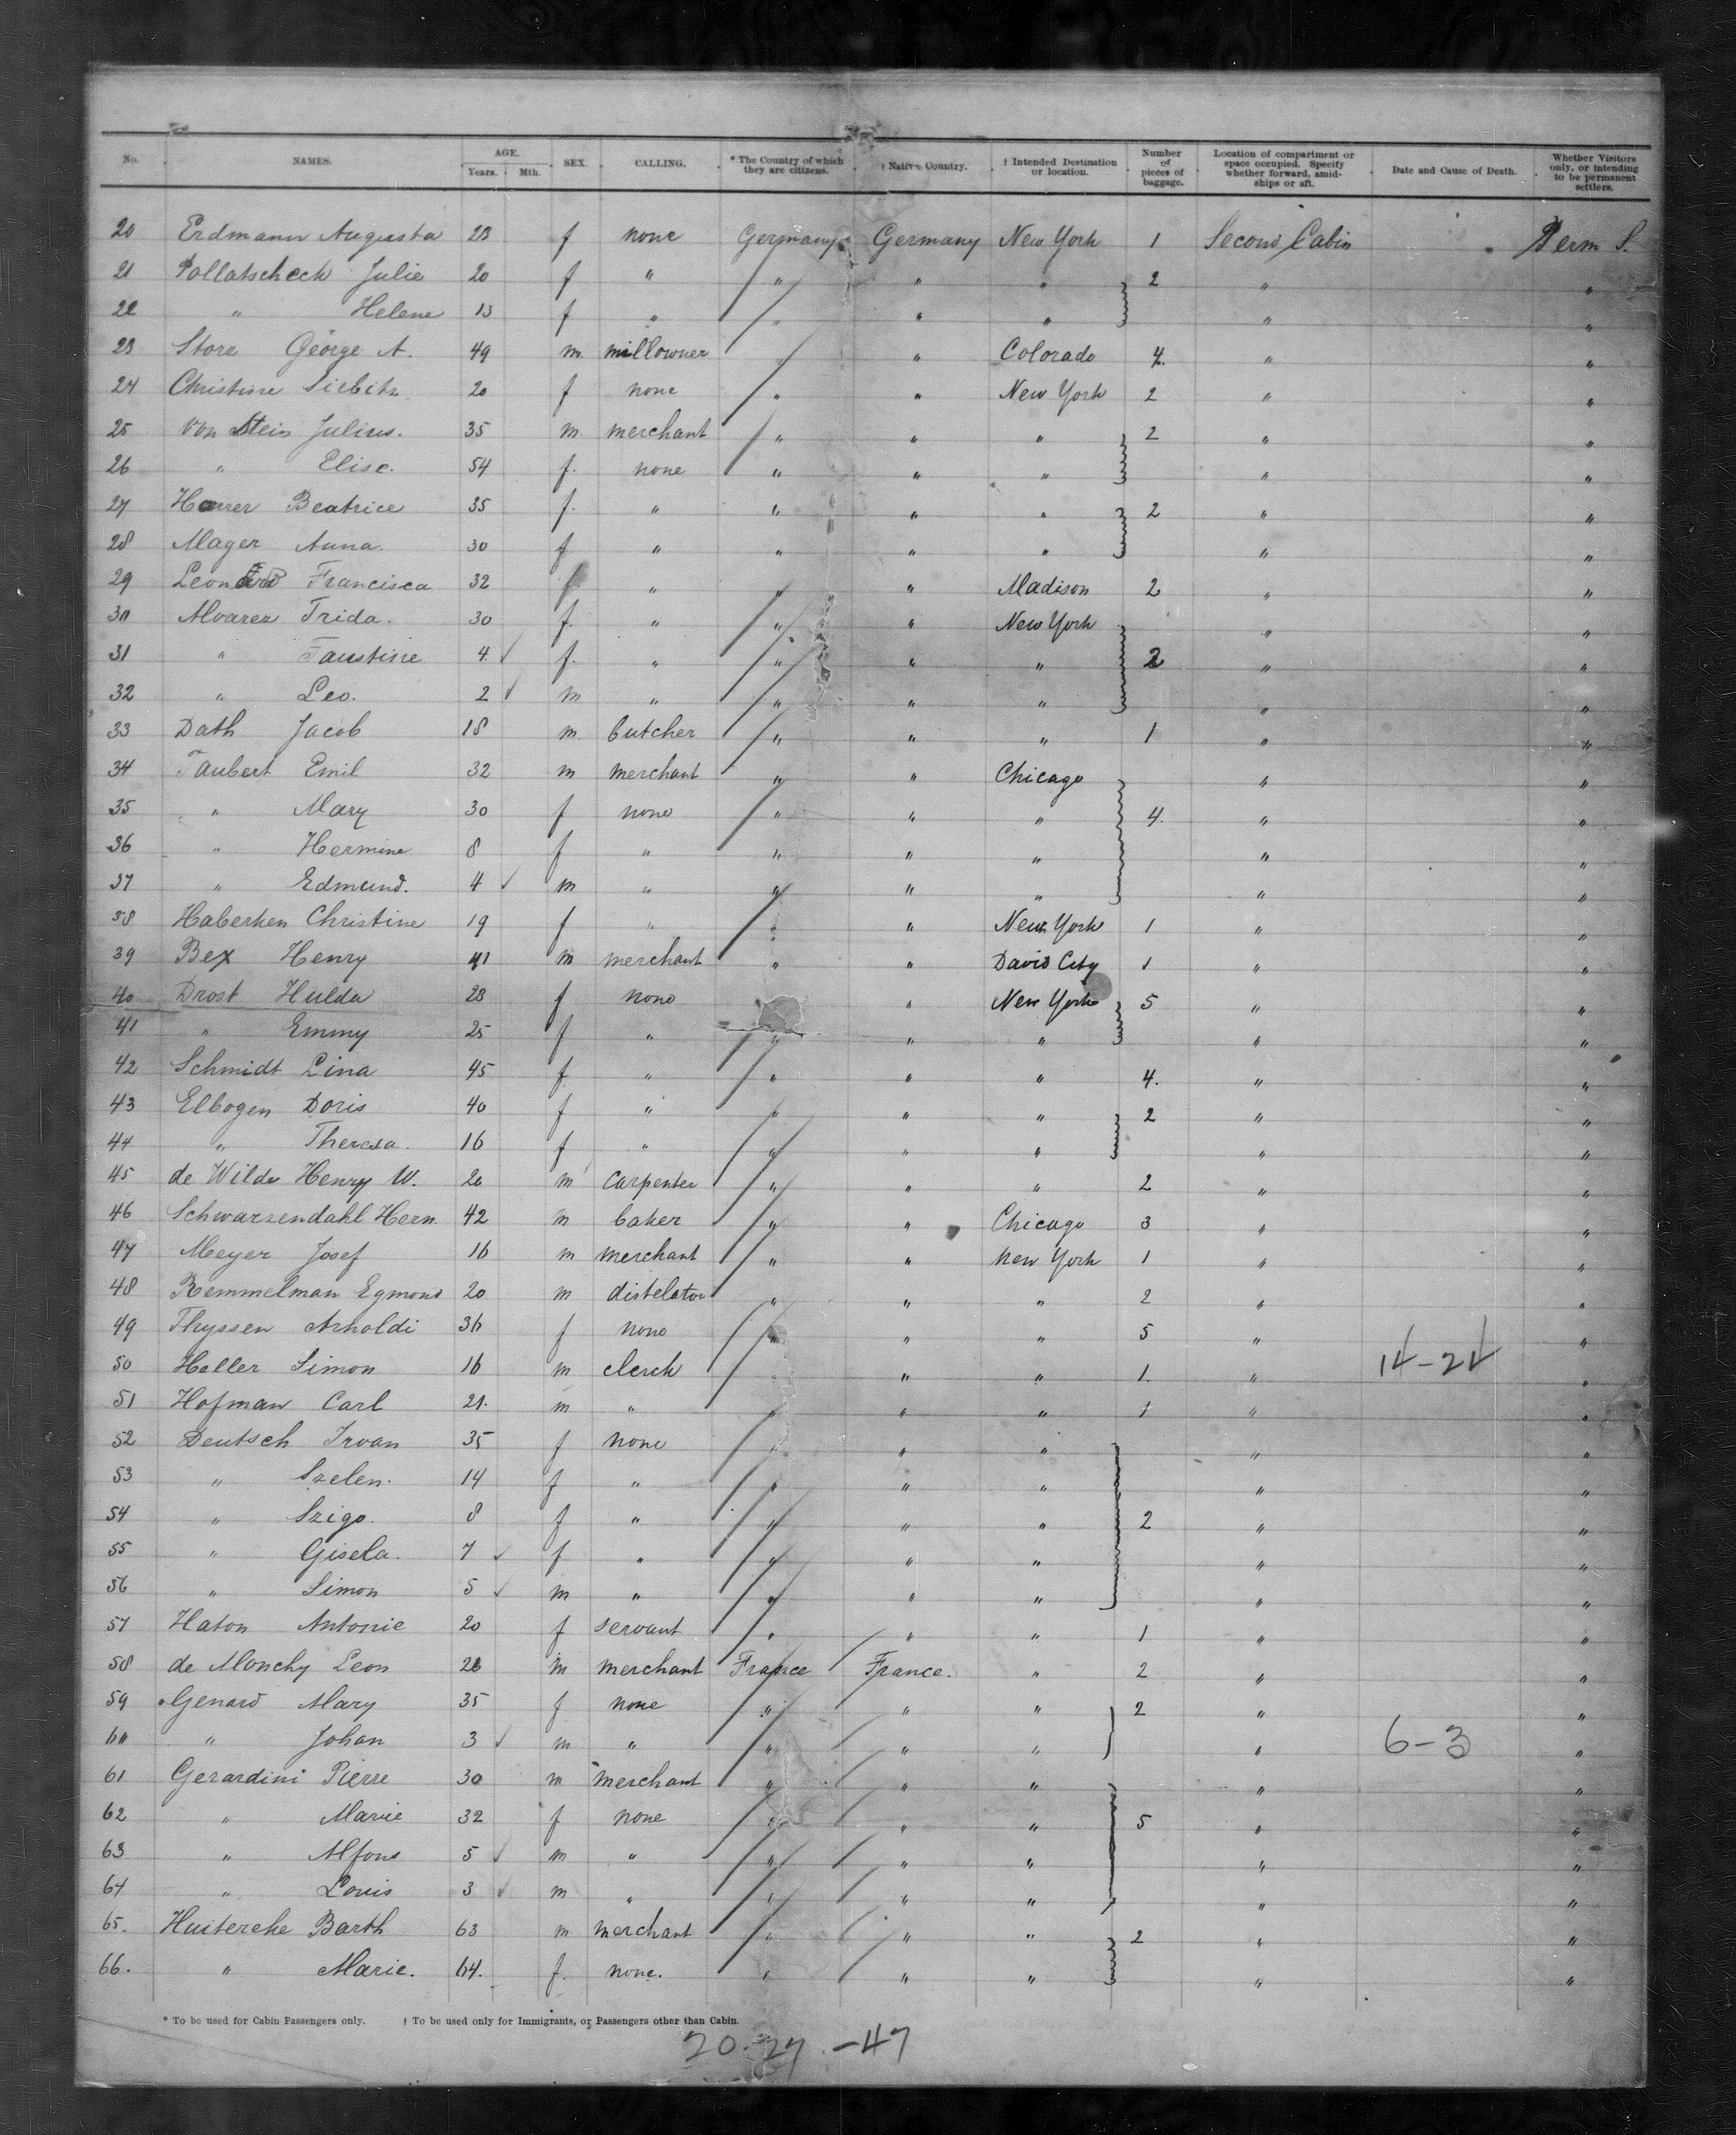 No. NAMES. AGE. Years. Mth. SEX. CALLING. * The Country of which they are citizens. † Native Country. † Intended Destination or location. Number of pieces of baggage. Location of compartment or space occupied. Specify whether forward, amidships or aft. Date and Cause of Death. Whether Visitors only, or intending to be permanent settlers.
20 Erdmann Augusta 23 f none Germany Germany New York 1 Second Cabin Perm S.
21 Pollatscheck Julie 20 f " " " " 2 " "
22 " Helene 13 f " " " " " "
23 Store George A. 49 m millowner " " Colorado 4. " "
24 Christine Siebitz 20 f none " " New York 2 " "
25 von Stein Julius. 35 m. merchant " " " 2 " "
26 " Elise. 54 f. none " " " " "
27 Beatrice 35 f. " " " " 2 " "
28 Mager Anna. 30 f " " " " " "
29 Francisca 32 f. " " " Madison 2 " "
30 Alvarez Frida. 30 f. " " " New York " "
31 " Faustine 4 f. " " " " 2 " "
32 " Leo. 2 m " " " " " "
33 Dath Jacob 18 m butcher " " " 1 " "
34 Taubert Emil 32 m merchant " " Chicago " "
35 " Mary 30 f none " " " 4. " "
36 " Hermine 8 f " " " " " "
37 " Edmund. 4 m " " " " " "
38 Haberken Christine 19 f " " " New York 1 " "
39 Bex Henry 41 m merchant " " David City 1 " "
40 Drost Hulda 23 f none " New York 5 " "
41 " Emmy 25 f " " " " " "
42 Schmidt Lina 45 f " " " " 4. " "
43 Elbogen Doris 40 f " " " " 2 " "
44 " Theresa. 16 f " " " " " "
45 de Wilde Henry W. 20 m carpenter " " " 2 " "
46 Schwarzendahl Herm. 42 m baker " " Chicago 3 " "
47 Meyer Josef 16 m merchant " " New York 1 " "
48 Remmelman Egmond 20 m distelator " " " 2 " "
49 Thyssen Arnoldi 36 f none " " " 5 " "
50 Heller Simon 16 m clerck " " " 1. " 14-24 "
51 Hofman Carl 21. m " " " " 1 " "
52 Deutsch Irvan 35 f none " " " " "
53 " Szelen. 14 f " " " " " "
54 " Szigo. 8 f " " " " 2 " "
55 " Gisela. 7 f " " " " " "
56 " Simon 5 m " " " " " "
57 Haton Antonie 20 f servant " " " 1 " "
58 de Monchy Leon 26 m merchant France France. " 2 " "
59 Genard Mary 35 f none " " " 2 " "
60 " Johan 3 m " " " " " 6-3 "
61 Gerardini Pierre 30 m merchant " " " " "
62 " Marie 32 f none " " " 5 " "
63 " Alfons 5 m " " " " " "
64 " Louis 3 m " " " " " "
65. Huiterche Barth 63 m merchant " " " 2 " "
66. " Marie. 64. f. none. " " " " "
* To be used for Cabin Passengers only. † To be used only for Immigrants, or Passengers other than Cabin.
20-27-47